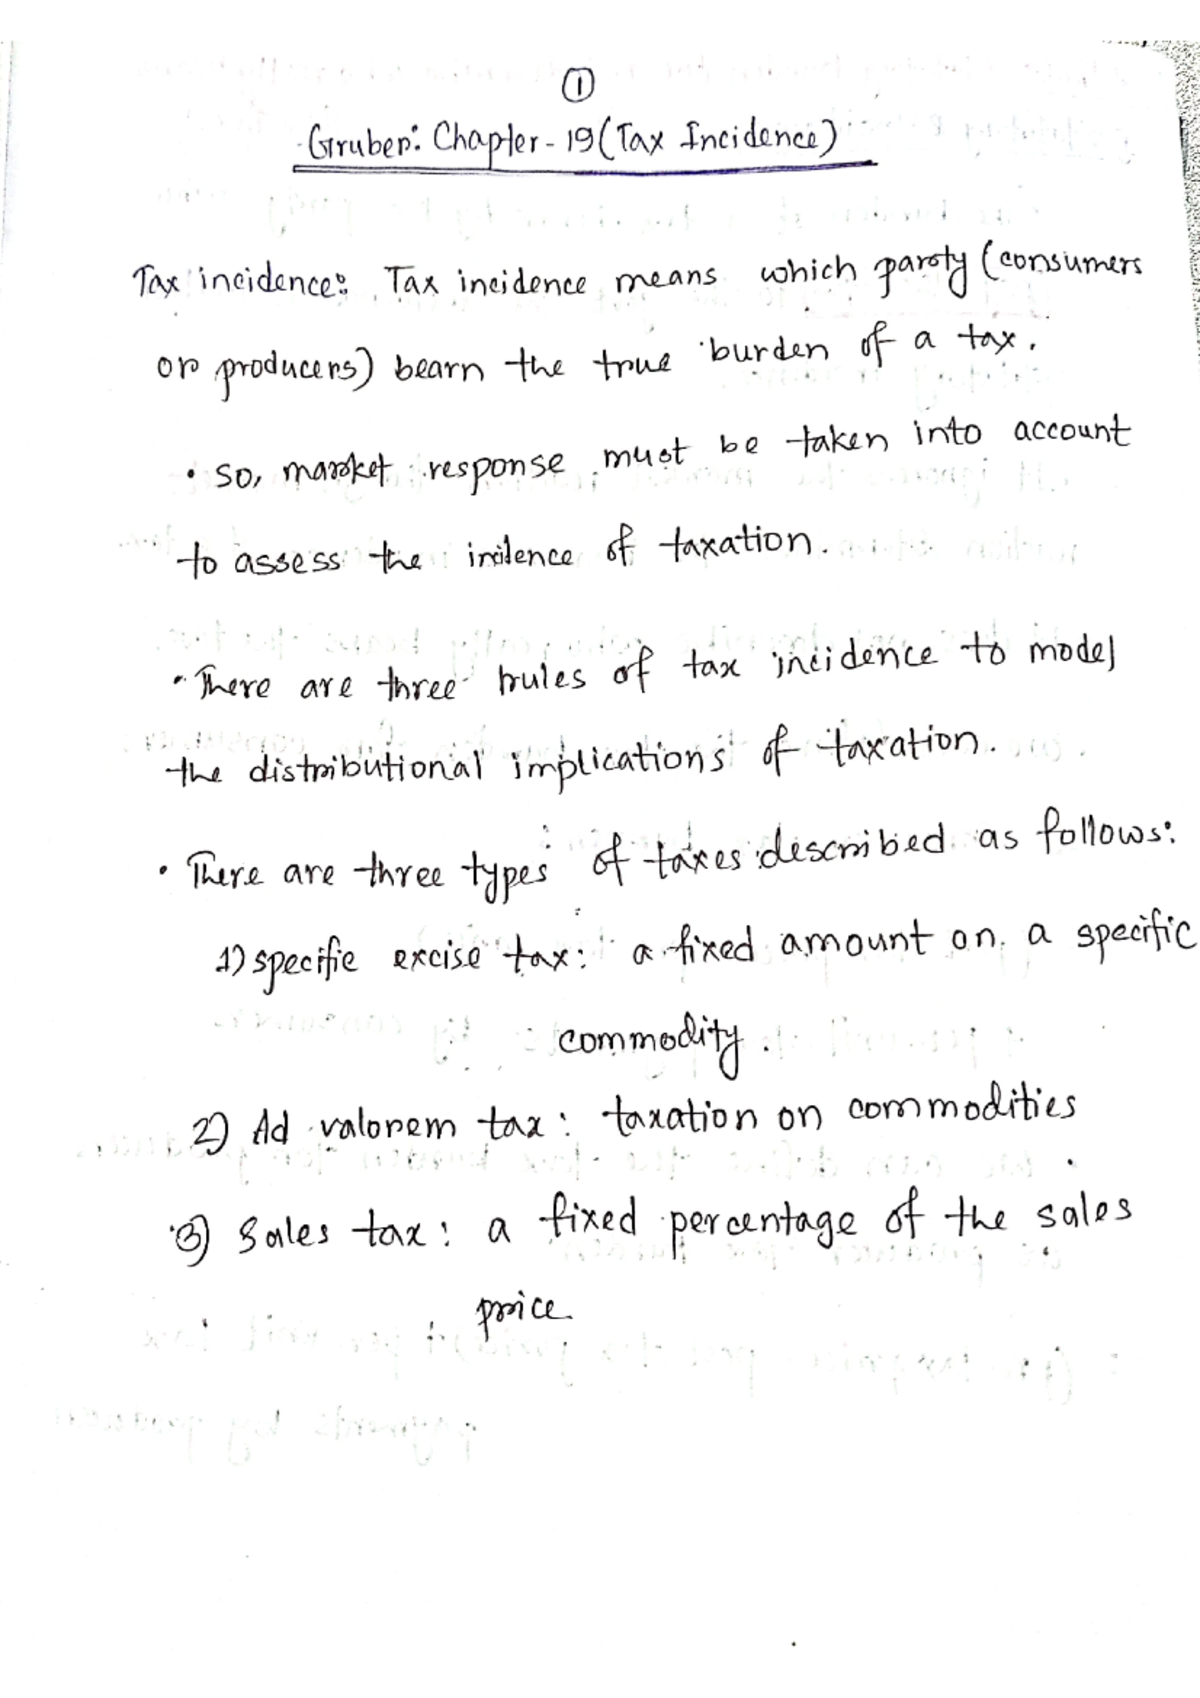 ①
Gruber: Chapter - 19 (Tax Incidence)
Tax incidence: Tax incidence means which party (consumers
or producers) bearn the true burden of a tax.
• So, market response must be taken into account
to assess the incidence of taxation.
• There are three rules of tax incidence to model
the distributional implications of taxation.
• There are three types of taxes described as follows:
1) specific excise tax: a fixed amount on a specific
commodity.
2) Ad valorem tax: taxation on commodities
3) Sales tax: a fixed percentage of the sales
price